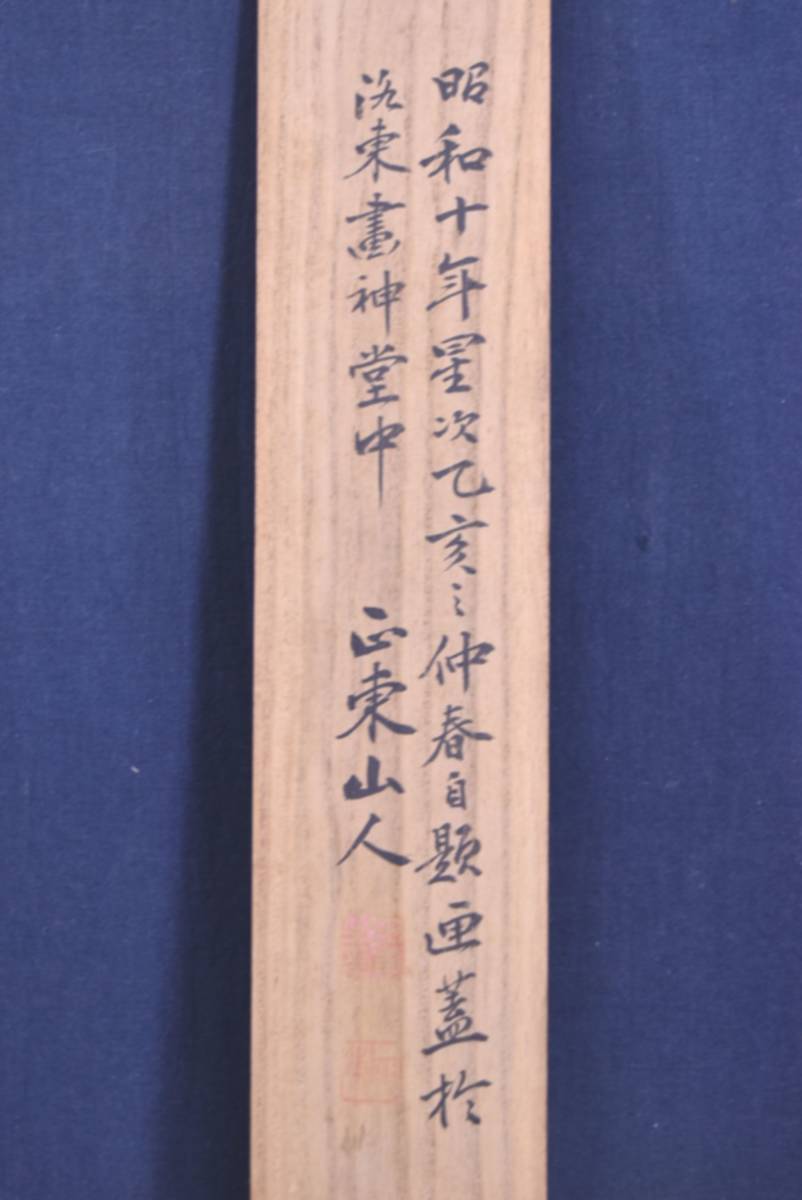 昭和十年星次乙亥之仲春自題画蓋於
洛東畫神堂中　正東山人